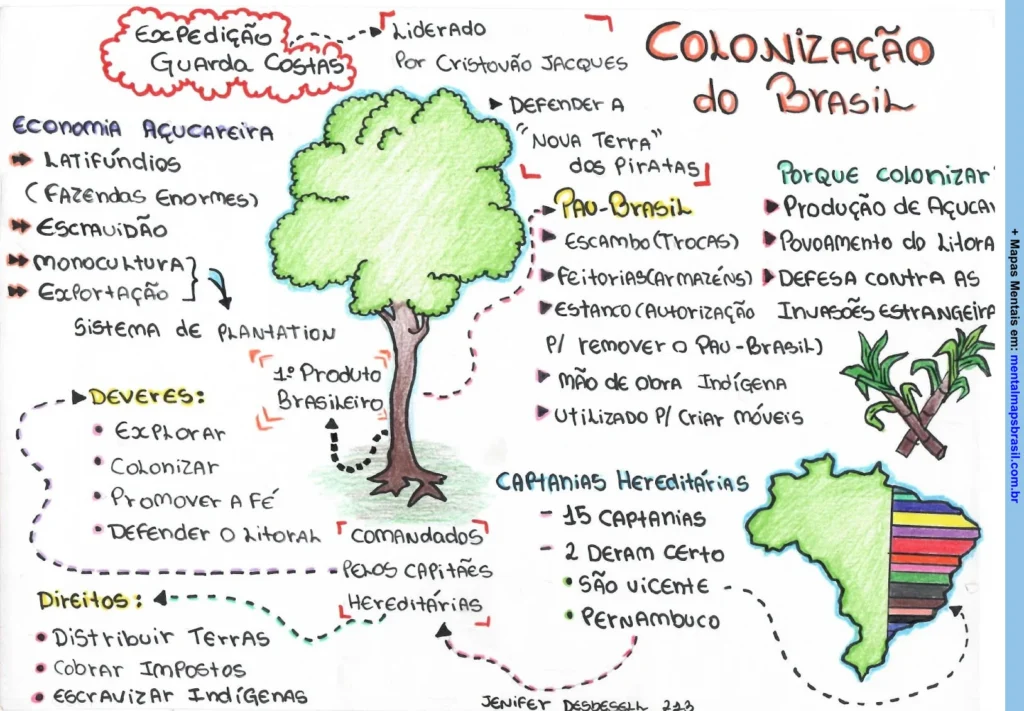 Colonização
do Brasil
Expedição
Guarda Costas
Liderado
Por Cristovão Jacques
Defender a
"Nova Terra"
dos Piratas
Economia Açucareira
Latifúndios
(Fazendas Enormes)
Escravidão
Monocultura
Exportação
Sistema de Plantation
1º Produto
Brasileiro
Pau-Brasil
Escambo (Trocas)
Feitorias (Armazéns)
Estanco (Autorização
p/ remover o Pau-Brasil)
Mão de obra Indígena
Utilizado p/ criar móveis
Porque colonizar
Produção de Açuca
Povoamento do Litora
Defesa contra as
Invasões Estrangeira
Deveres:
Explorar
Colonizar
Promover a Fé
Defender o Litoral
Comandados
pelos Capitães
Hereditárias
Direitos:
Distribuir Terras
Cobrar Impostos
Escravizar Indígenas
Captanias Hereditárias
15 Captanias
2 deram certo
São Vicente
Pernambuco
+ Mapas Mentais em: mentalmapsbrasil.com.br